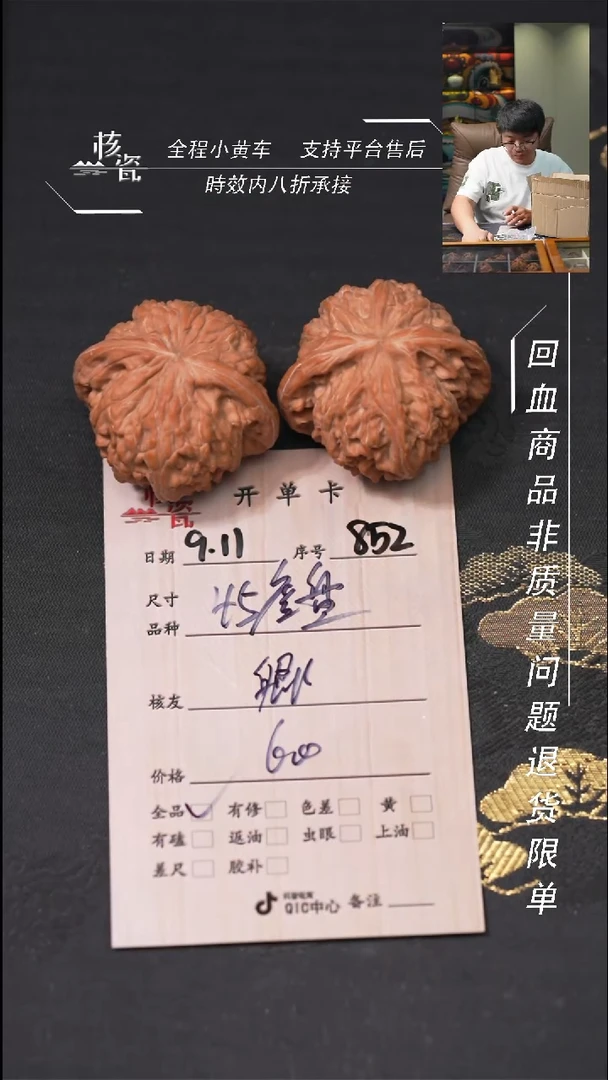 核瓷
全程小黄车 支持平台售后
時效内八折承接
回血商品非质量问题退货限单
核瓷
开单卡
日期 9.11 序号 852
尺寸
品种
核友
价格 600
全品 有修 色差 黄
有磕 返油 虫眼 上油
差尺 胶补
抖音电商
QIC中心 备注